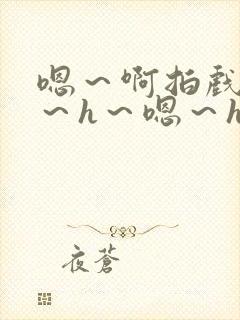 嗯～啊拍戏
～h～嗯～h
夜蒼